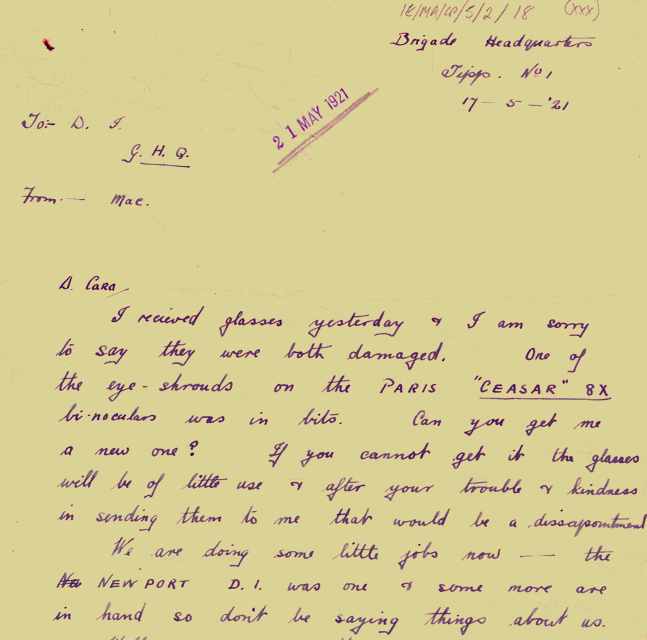 IE/MA/CP/5/2/18 (XXX)
Brigade Headquarters
Tipp. No 1
17 - 5 - '21
21 MAY 1921
To:- D. I.
G. H. Q.
From:- Mac.
A Cara,
I recieved glasses yesterday & I am sorry
to say they were both damaged. One of
the eye-shrouds on the PARIS "CEASAR" 8X
bi-noculars was in bits. Can you get me
a new one? If you cannot get it the glasses
will be of little use & after your trouble & kindness
in sending them to me that would be a dissapointment
We are doing some little jobs now — the
NEWPORT D.I. was one & some more are
in hand so don't be saying things about us.